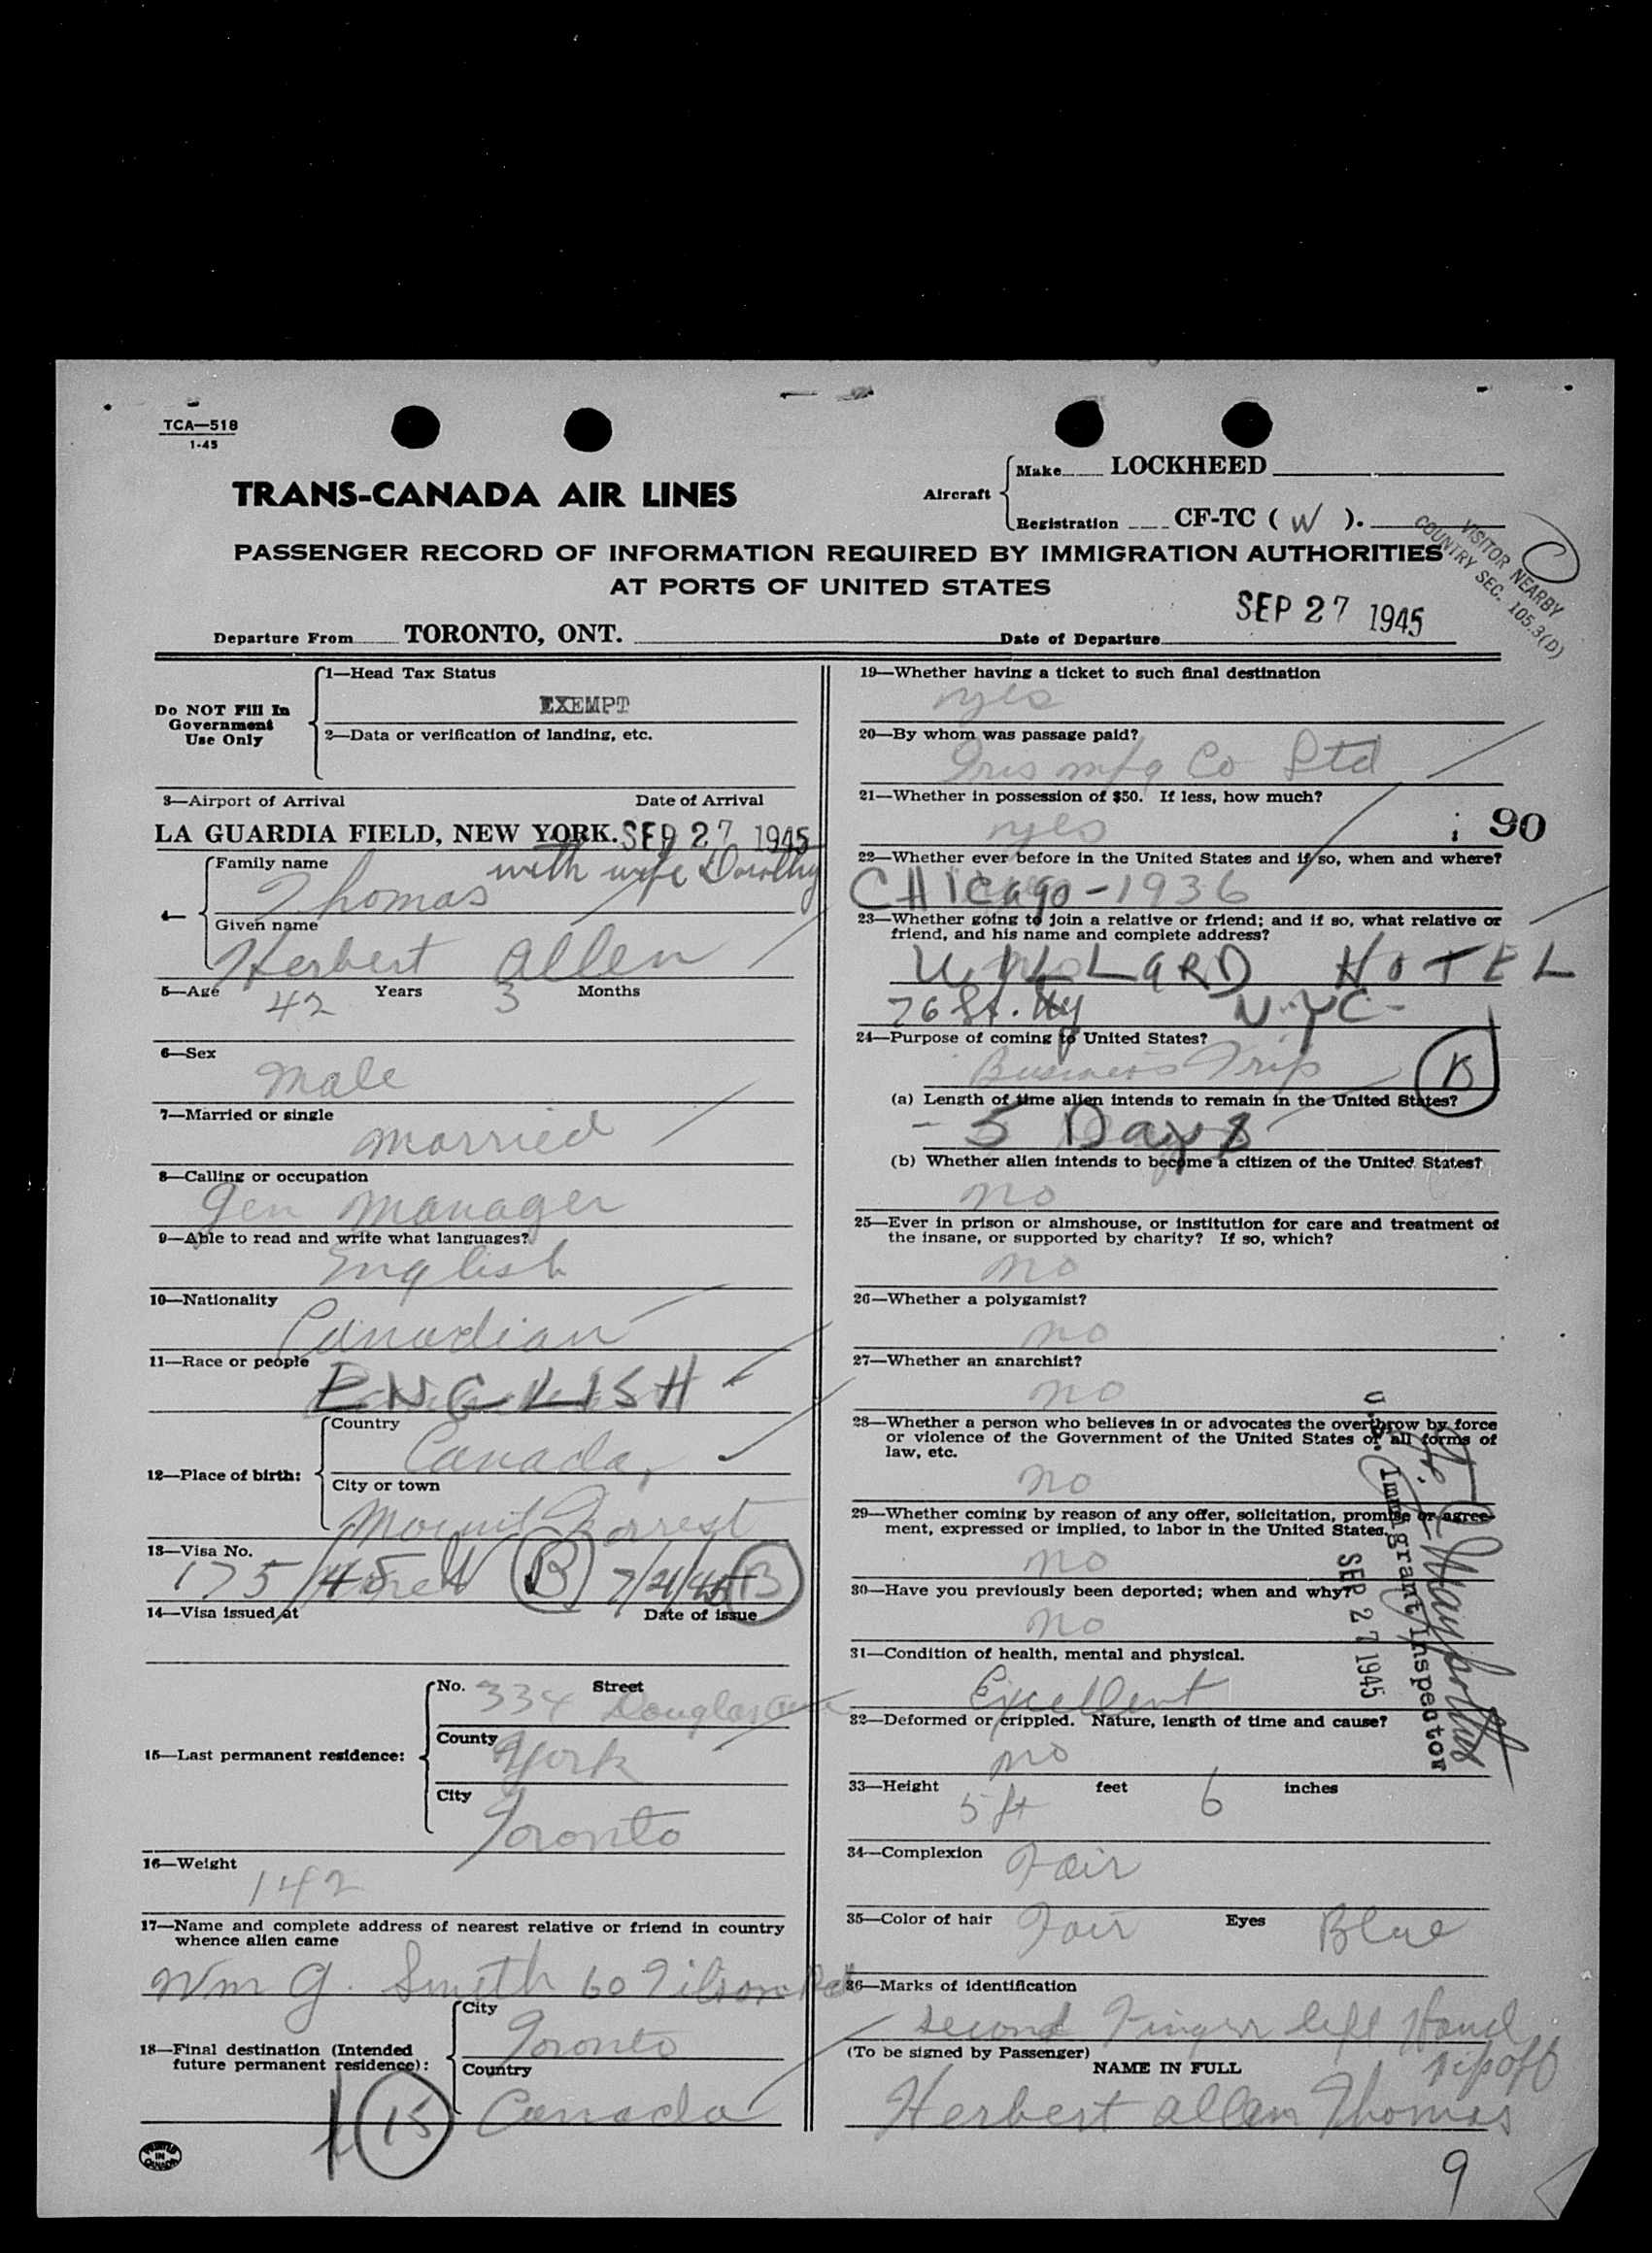 TCA—518
1-45
TRANS-CANADA AIR LINES
Aircraft
Make LOCKHEED
Registration CF-TC ( W ).
PASSENGER RECORD OF INFORMATION REQUIRED BY IMMIGRATION AUTHORITIES
AT PORTS OF UNITED STATES
VISITOR NEARBY
COUNTRY SEC. 105.3(D)
C
Departure From TORONTO, ONT.
Date of Departure SEP 27 1945
Do NOT Fill In
Government
Use Only
1—Head Tax Status
EXEMPT
2—Data or verification of landing, etc.
3—Airport of Arrival Date of Arrival
LA GUARDIA FIELD, NEW YORK. SEP 27 1945
4—
Family name
with wife Dorothy
Thomas
Given name
Herbert Allen
5—Age 42 Years 3 Months
6—Sex
Male
7—Married or single
Married
8—Calling or occupation
Gen Manager
9—Able to read and write what languages?
English
10—Nationality
Canadian
11—Race or people
ENGLISH
12—Place of birth:
Country
Canada
City or town
Mount Forrest
13—Visa No.
175/45 B B
14—Visa issued at Date of issue
15—Last permanent residence:
No. 334 Street Douglas Ave
County York
City
Toronto
16—Weight
142
17—Name and complete address of nearest relative or friend in country
whence alien came
Wm G. Smith 60
18—Final destination (Intended
future permanent residence):
City
Toronto
Country
Canada
15
PRINTED
IN
CANADA
19—Whether having a ticket to such final destination
yes
20—By whom was passage paid?
mfg Co Ltd
21—Whether in possession of $50. If less, how much?
yes
90
22—Whether ever before in the United States and if so, when and where?
CHICago - 1936
23—Whether going to join a relative or friend; and if so, what relative or
friend, and his name and complete address?
WILLARD HOTEL
76 St. N.Y.C-
24—Purpose of coming to United States?
Business Trip
B
(a) Length of time alien intends to remain in the United States?
- 5 Days
(b) Whether alien intends to become a citizen of the United States?
no
25—Ever in prison or almshouse, or institution for care and treatment of
the insane, or supported by charity? If so, which?
no
26—Whether a polygamist?
no
27—Whether an anarchist?
no
28—Whether a person who believes in or advocates the overthrow by force
or violence of the Government of the United States or all forms of
law, etc.
no
29—Whether coming by reason of any offer, solicitation, promise or agree-
ment, expressed or implied, to labor in the United States.
no
30—Have you previously been deported; when and why?
no
U.S. Immigrant Inspector
SEP 27 1945
31—Condition of health, mental and physical.
Excellent
32—Deformed or crippled. Nature, length of time and cause?
no
33—Height 5 ft feet 6 inches
34—Complexion Fair
35—Color of hair Fair Eyes Blue
36—Marks of identification
second Finger left Hand
tip off
(To be signed by Passenger)
NAME IN FULL
Herbert Allan Thomas
9